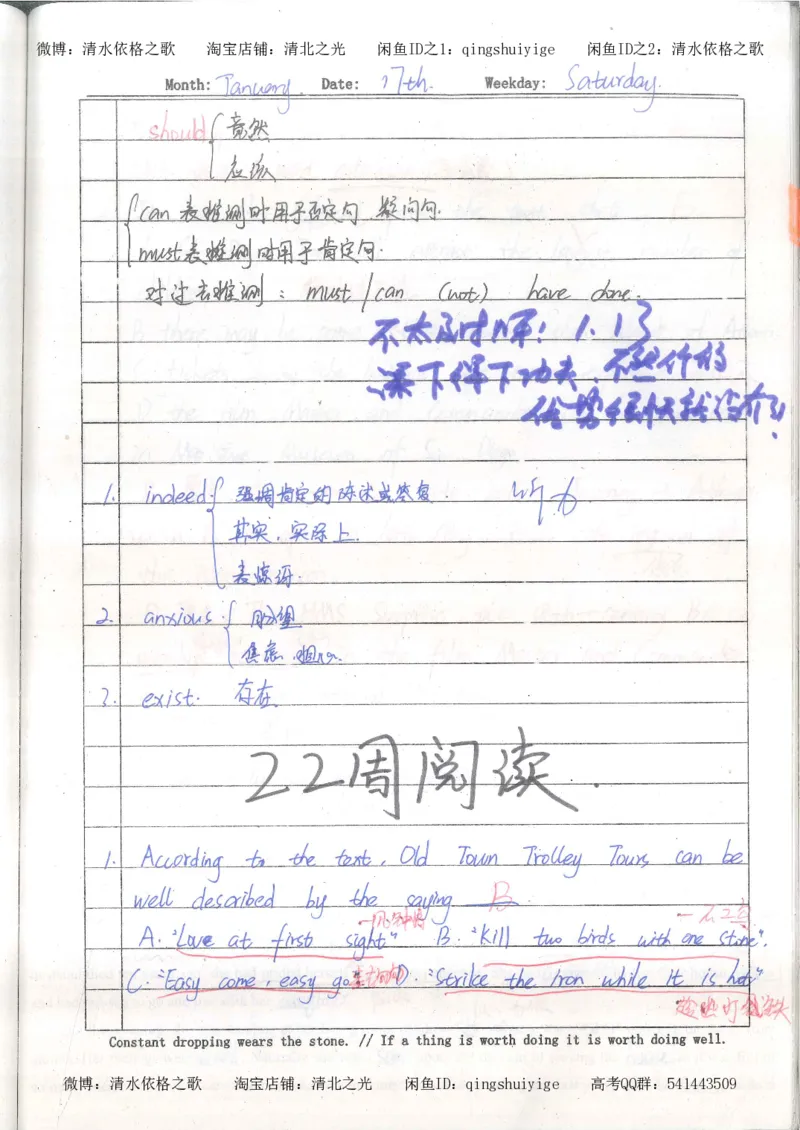 微博：清水依格之歌 淘宝店铺：清北之光 闲鱼ID之1：qingshuiyige 闲鱼ID之2：清水依格之歌
Month: January. Date: 17th. Weekday: Saturday.
should { 竟然
应该
{ can 表推测时用于否定句、疑问句.
must表推测时用于肯定句.
对过去推测：must / can (not) have done.
不太及时
下得下功夫、不然你的
优势很快就没有了！
1. indeed { 强调肯定的陈述或答复.
其实，实际上.
表惊讶.
2. anxious {
焦虑
3. exist. 存在
22周阅读.
1. According to the text, Old Town Trolley Tours can be
well described by the saying B.
一见钟情 一石二鸟
A. "Love at first sight" B. "Kill two birds with one stone".
C. "Easy come, easy go D. "Strike the iron while it is hot"
趁热打铁
Constant dropping wears the stone. // If a thing is worth doing it is worth doing well.
微博：清水依格之歌 淘宝店铺：清北之光 闲鱼ID：qingshuiyige 高考QQ群：541443509